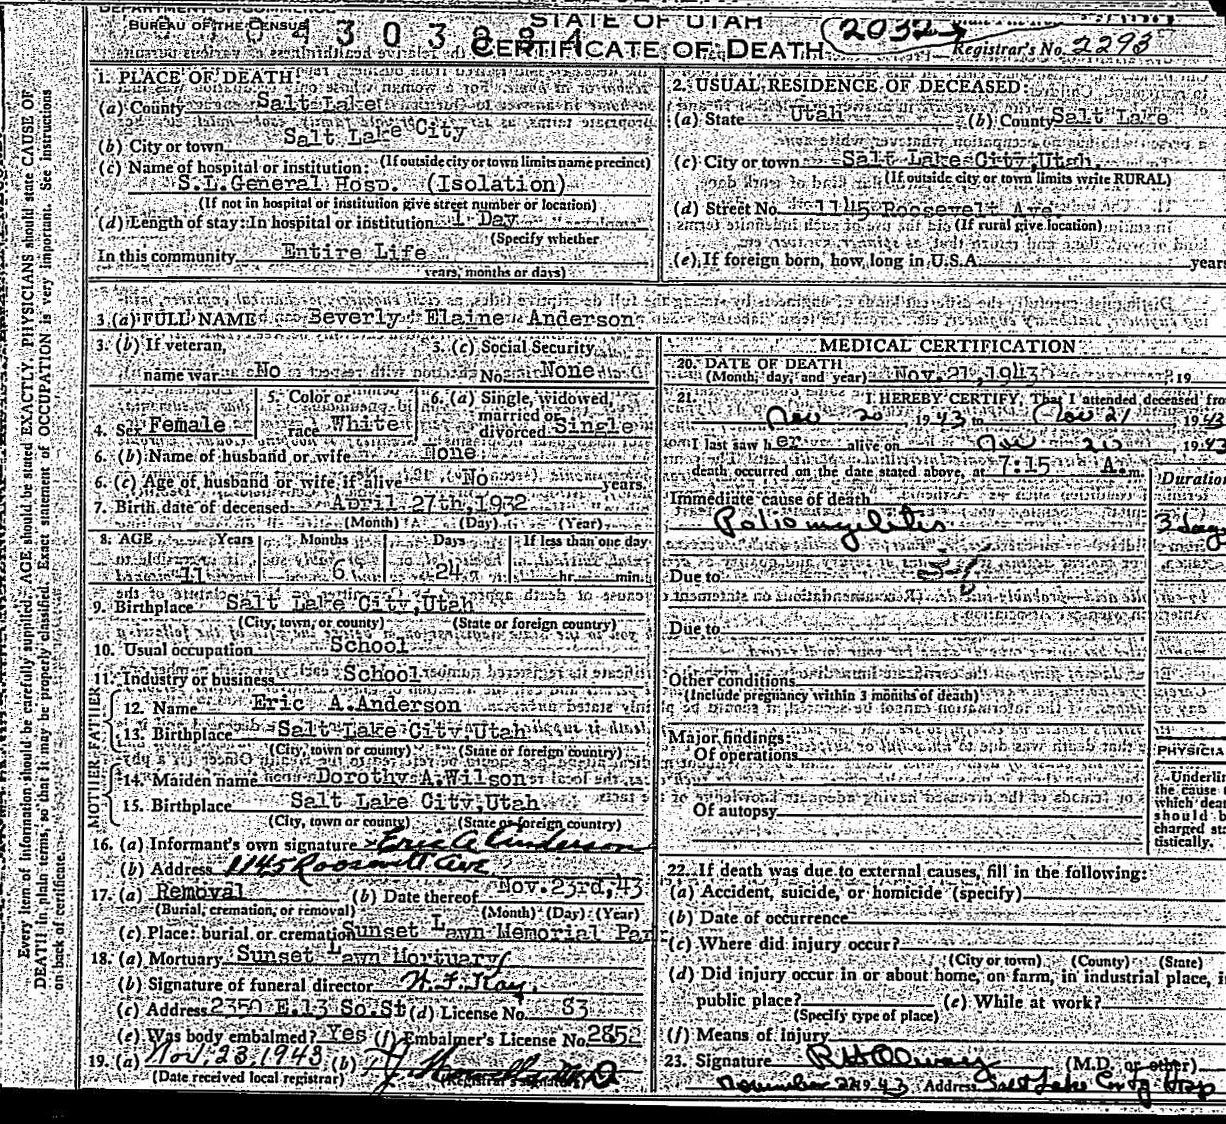 DEPARTMENT OF COMMERCE
BUREAU OF THE CENSUS
STATE OF UTAH
CERTIFICATE OF DEATH
2032
Registrar's No. 2293
Every item of information should be carefully supplied. AGE should be stated EXACTLY. PHYSICIANS should state CAUSE OF
DEATH in plain terms, so that it may be properly classified. Exact statement of OCCUPATION is very important. See instructions
on back of certificate.
1. PLACE OF DEATH:
(a) County Salt Lake
(b) City or town Salt Lake City
(If outside city or town limits name precinct)
(c) Name of hospital or institution:
S.L.General Hosp. (Isolation)
(If not in hospital or institution give street number or location)
(d) Length of stay: In hospital or institution 1 Day
(Specify whether
In this community Entire Life
years, months or days)
2. USUAL RESIDENCE OF DECEASED:
(a) State Utah (b) County Salt Lake
(c) City or town Salt Lake City,Utah.
(If outside city or town limits write RURAL)
(d) Street No. 1145 Roosevelt Ave.
(If rural give location)
(e) If foreign born, how long in U.S.A. years
3. (a) FULL NAME Beverly Elaine Anderson
3. (b) If veteran, name war No
3. (c) Social Security No. None
4. Sex Female
5. Color or race White
6. (a) Single, widowed, married or divorced Single
6. (b) Name of husband or wife None
6. (c) Age of husband or wife if alive No years.
7. Birth date of deceased April 27th,1932
(Month) (Day) (Year)
8. AGE Years Months Days If less than one day
11 6 24 hr. min.
9. Birthplace Salt Lake City,Utah
(City, town, or county) (State or foreign country)
10. Usual occupation School
11. Industry or business School
FATHER
12. Name Eric A.Anderson
13. Birthplace Salt Lake City,Utah
(City, town or county) (State or foreign country)
MOTHER
14. Maiden name Dorothy A.Wilson
15. Birthplace Salt Lake City,Utah
(City, town or county) (State or foreign country)
16. (a) Informant's own signature Eric A Anderson
(b) Address 1145 Roosevelt Ave
17. (a) Removal (b) Date thereof Nov.23rd,43
(Burial, cremation, or removal) (Month) (Day) (Year)
(c) Place: burial or cremation Sunset Lawn Memorial Par
18. (a) Mortuary Sunset Lawn Mortuary
(b) Signature of funeral director
(c) Address 2350 E.13 So.St (d) License No. 83
(e) Was body embalmed? Yes (f) Embalmer's License No. 2852
19. (a) Nov. 23, 1943 (b)
(Date received local registrar) (Registrar's signature)
MEDICAL CERTIFICATION
20. DATE OF DEATH
(Month, day, and year) Nov.21,1943 , 19
21. I HEREBY CERTIFY, That I attended deceased fro
Nov 20 , 1943 to Nov 21 , 1943
I last saw her alive on Nov 20 , 1943
death occurred on the date stated above, at 7:15 A. m
Duration
Immediate cause of death
Poliomyelitis 3 days
Due to
Due to
Other conditions
(Include pregnancy within 3 months of death)
Major findings:
Of operations
Of autopsy
PHYSICIA
Underlin
the cause
which dea
should b
charged sta
tistically.
22. If death was due to external causes, fill in the following:
(a) Accident, suicide, or homicide (specify)
(b) Date of occurrence
(c) Where did injury occur?
(City or town) (County) (State)
(d) Did injury occur in or about home, on farm, in industrial place, i
public place? (e) While at work?
(Specify type of place)
(f) Means of injury
23. Signature (M.D. or other)
November 22 1943 Address Salt Lake